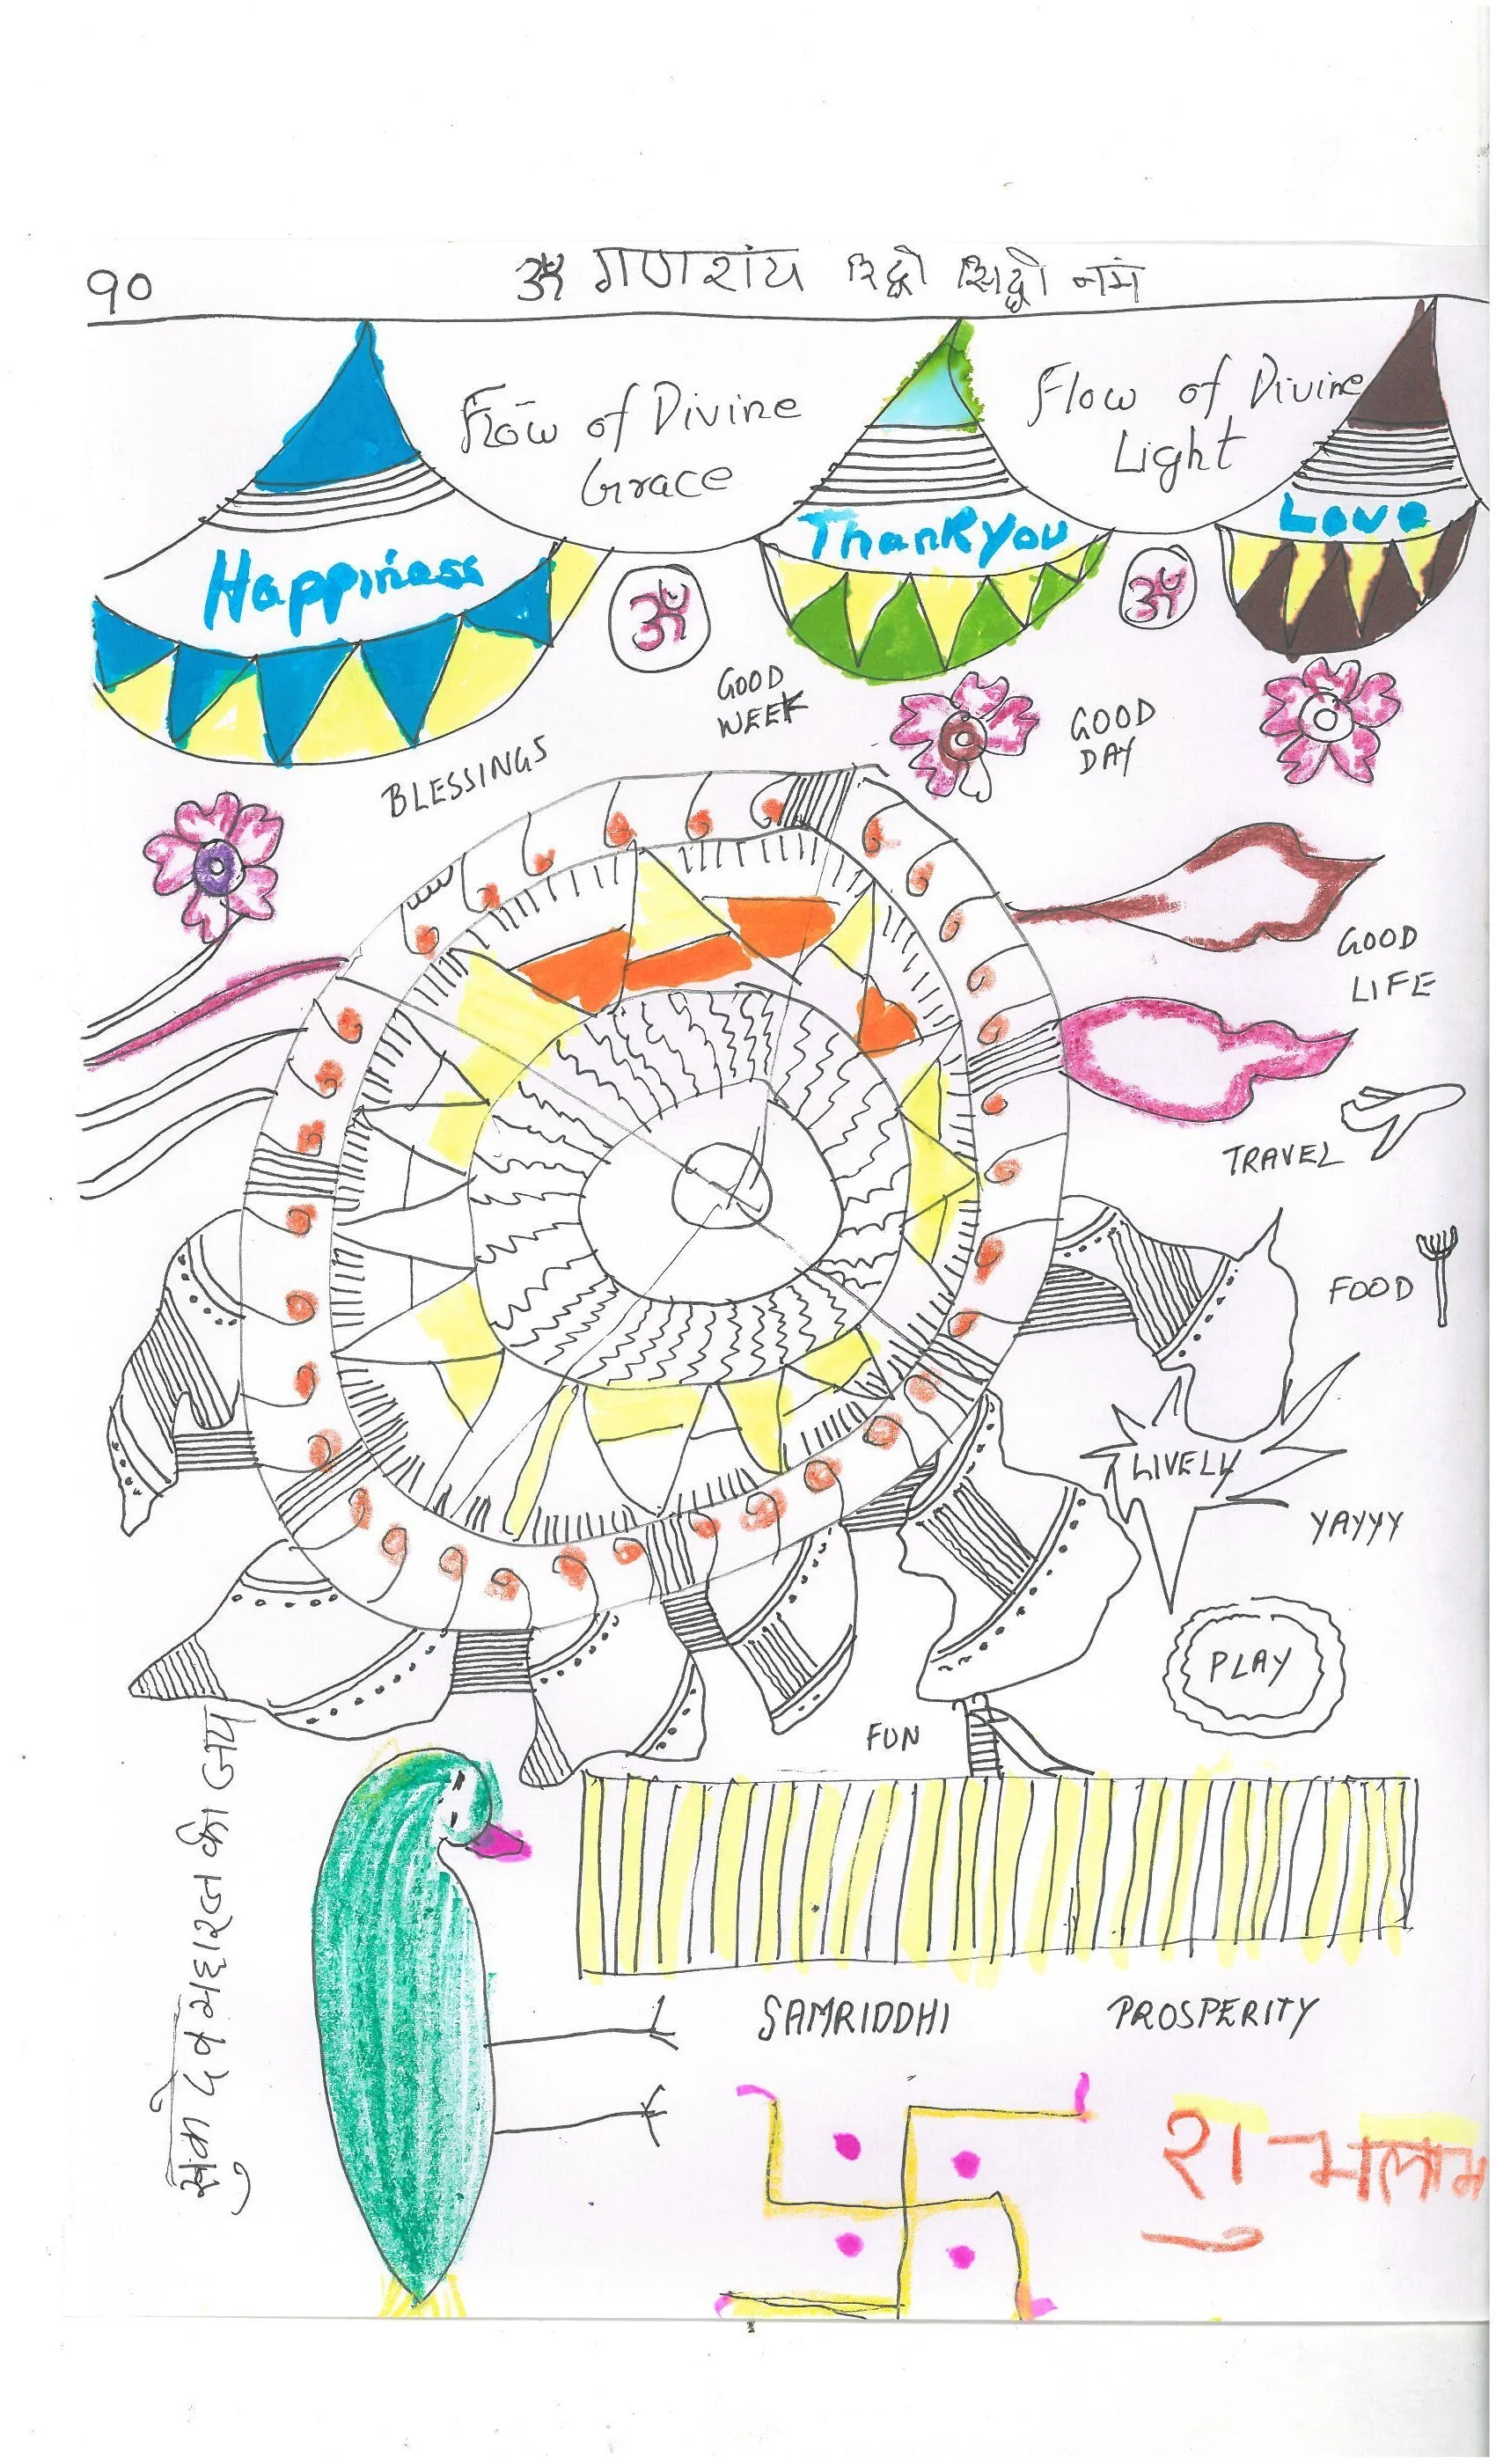 90
ॐ गणशंय रिद्धी सिद्धी नमं
Flow of Divine
Grace
Flow of Divine
Light
Happiness
ThankYou
Love
ॐ
ॐ
GOOD
WEEK
GOOD
DAY
BLESSINGS
GOOD
LIFE
TRAVEL
FOOD
LIVELY
YAYYY
PLAY
FUN
की जय
SAMRIDDHI
PROSPERITY